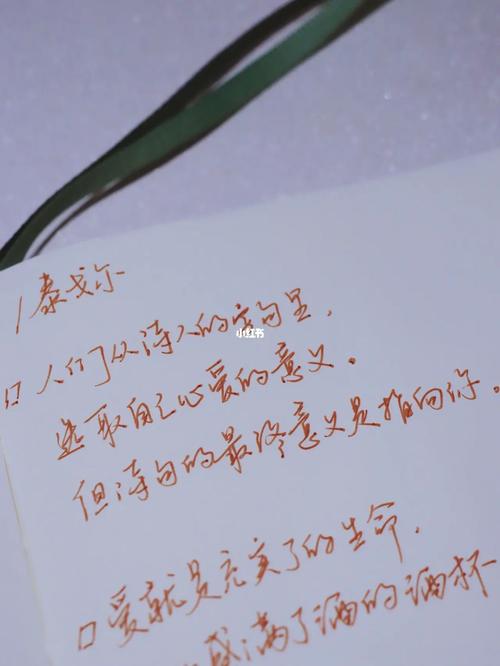 /泰戈尔
□ 人们从诗人的字句里,
小红书
选取自己心爱的意义。
但诗句的最终意义是指向你。
□ 爱就是充实了的生命,
盛满了酒的酒杯